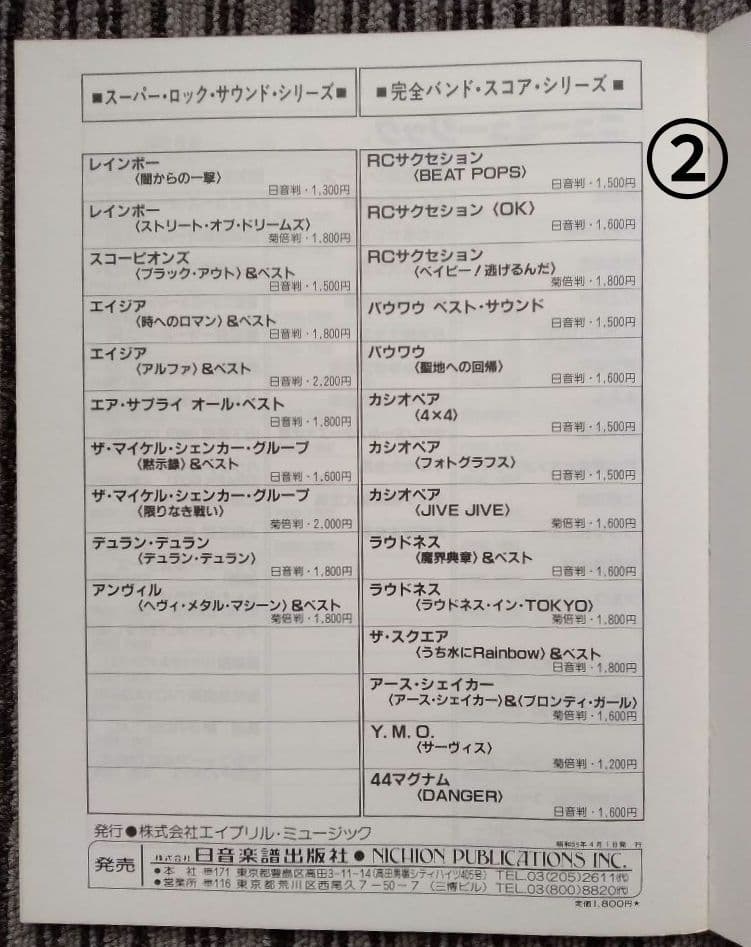 ②
■スーパー・ロック・サウンド・シリーズ■
レインボー
〈闇からの一撃〉
日音判・1,300円
レインボー
〈ストリート・オブ・ドリームズ〉
菊倍判・1,800円
スコーピオンズ
〈ブラック・アウト〉&ベスト
日音判・1,500円
エイジア
〈時へのロマン〉&ベスト
日音判・1,800円
エイジア
〈アルファ〉&ベスト
日音判・2,200円
エア・サプライ オール・ベスト
日音判・1,800円
ザ・マイケル・シェンカー・グループ
〈黙示録〉&ベスト
日音判・1,600円
ザ・マイケル・シェンカー・グループ
〈限りなき戦い〉
菊倍判・2,000円
デュラン・デュラン
〈デュラン・デュラン〉
日音判・1,800円
アンヴィル
〈ヘヴィ・メタル・マシーン〉&ベスト
菊倍判・1,800円
■完全バンド・スコア・シリーズ■
RCサクセション
〈BEAT POPS〉
日音判・1,500円
RCサクセション〈OK〉
日音判・1,600円
RCサクセション
〈ベイビー!逃げるんだ〉
菊倍判・1,800円
バウワウ ベスト・サウンド
日音判・1,500円
バウワウ
〈聖地への回帰〉
日音判・1,600円
カシオペア
〈4×4〉
日音判・1,500円
カシオペア
〈フォトグラフス〉
日音判・1,500円
カシオペア
〈JIVE JIVE〉
菊倍判・1,600円
ラウドネス
〈魔界典章〉&ベスト
日音判・1,600円
ラウドネス
〈ラウドネス・イン・TOKYO〉
菊倍判・1,800円
ザ・スクエア
〈うち水にRainbow〉&ベスト
日音判・1,800円
アース・シェイカー
〈アース・シェイカー〉&〈ブロンディ・ガール〉
菊倍判・1,600円
Y. M. O.
〈サーヴィス〉
菊倍判・1,200円
44マグナム
〈DANGER〉
日音判・1,600円
発行●株式会社エイプリル・ミュージック
昭和59年4月1日発 行
発売
株式会社 日音楽譜出版社 ● NICHION PUBLICATIONS INC.
●本 社 〒171 東京都豊島区高田3-11-14(高田馬場シティハイツ405号) TEL.03(205)2611㈹
●営業所 〒116 東京都荒川区西尾久7-50-7 (三博ビル) TEL.03(800)8820㈹
定価1,800円★